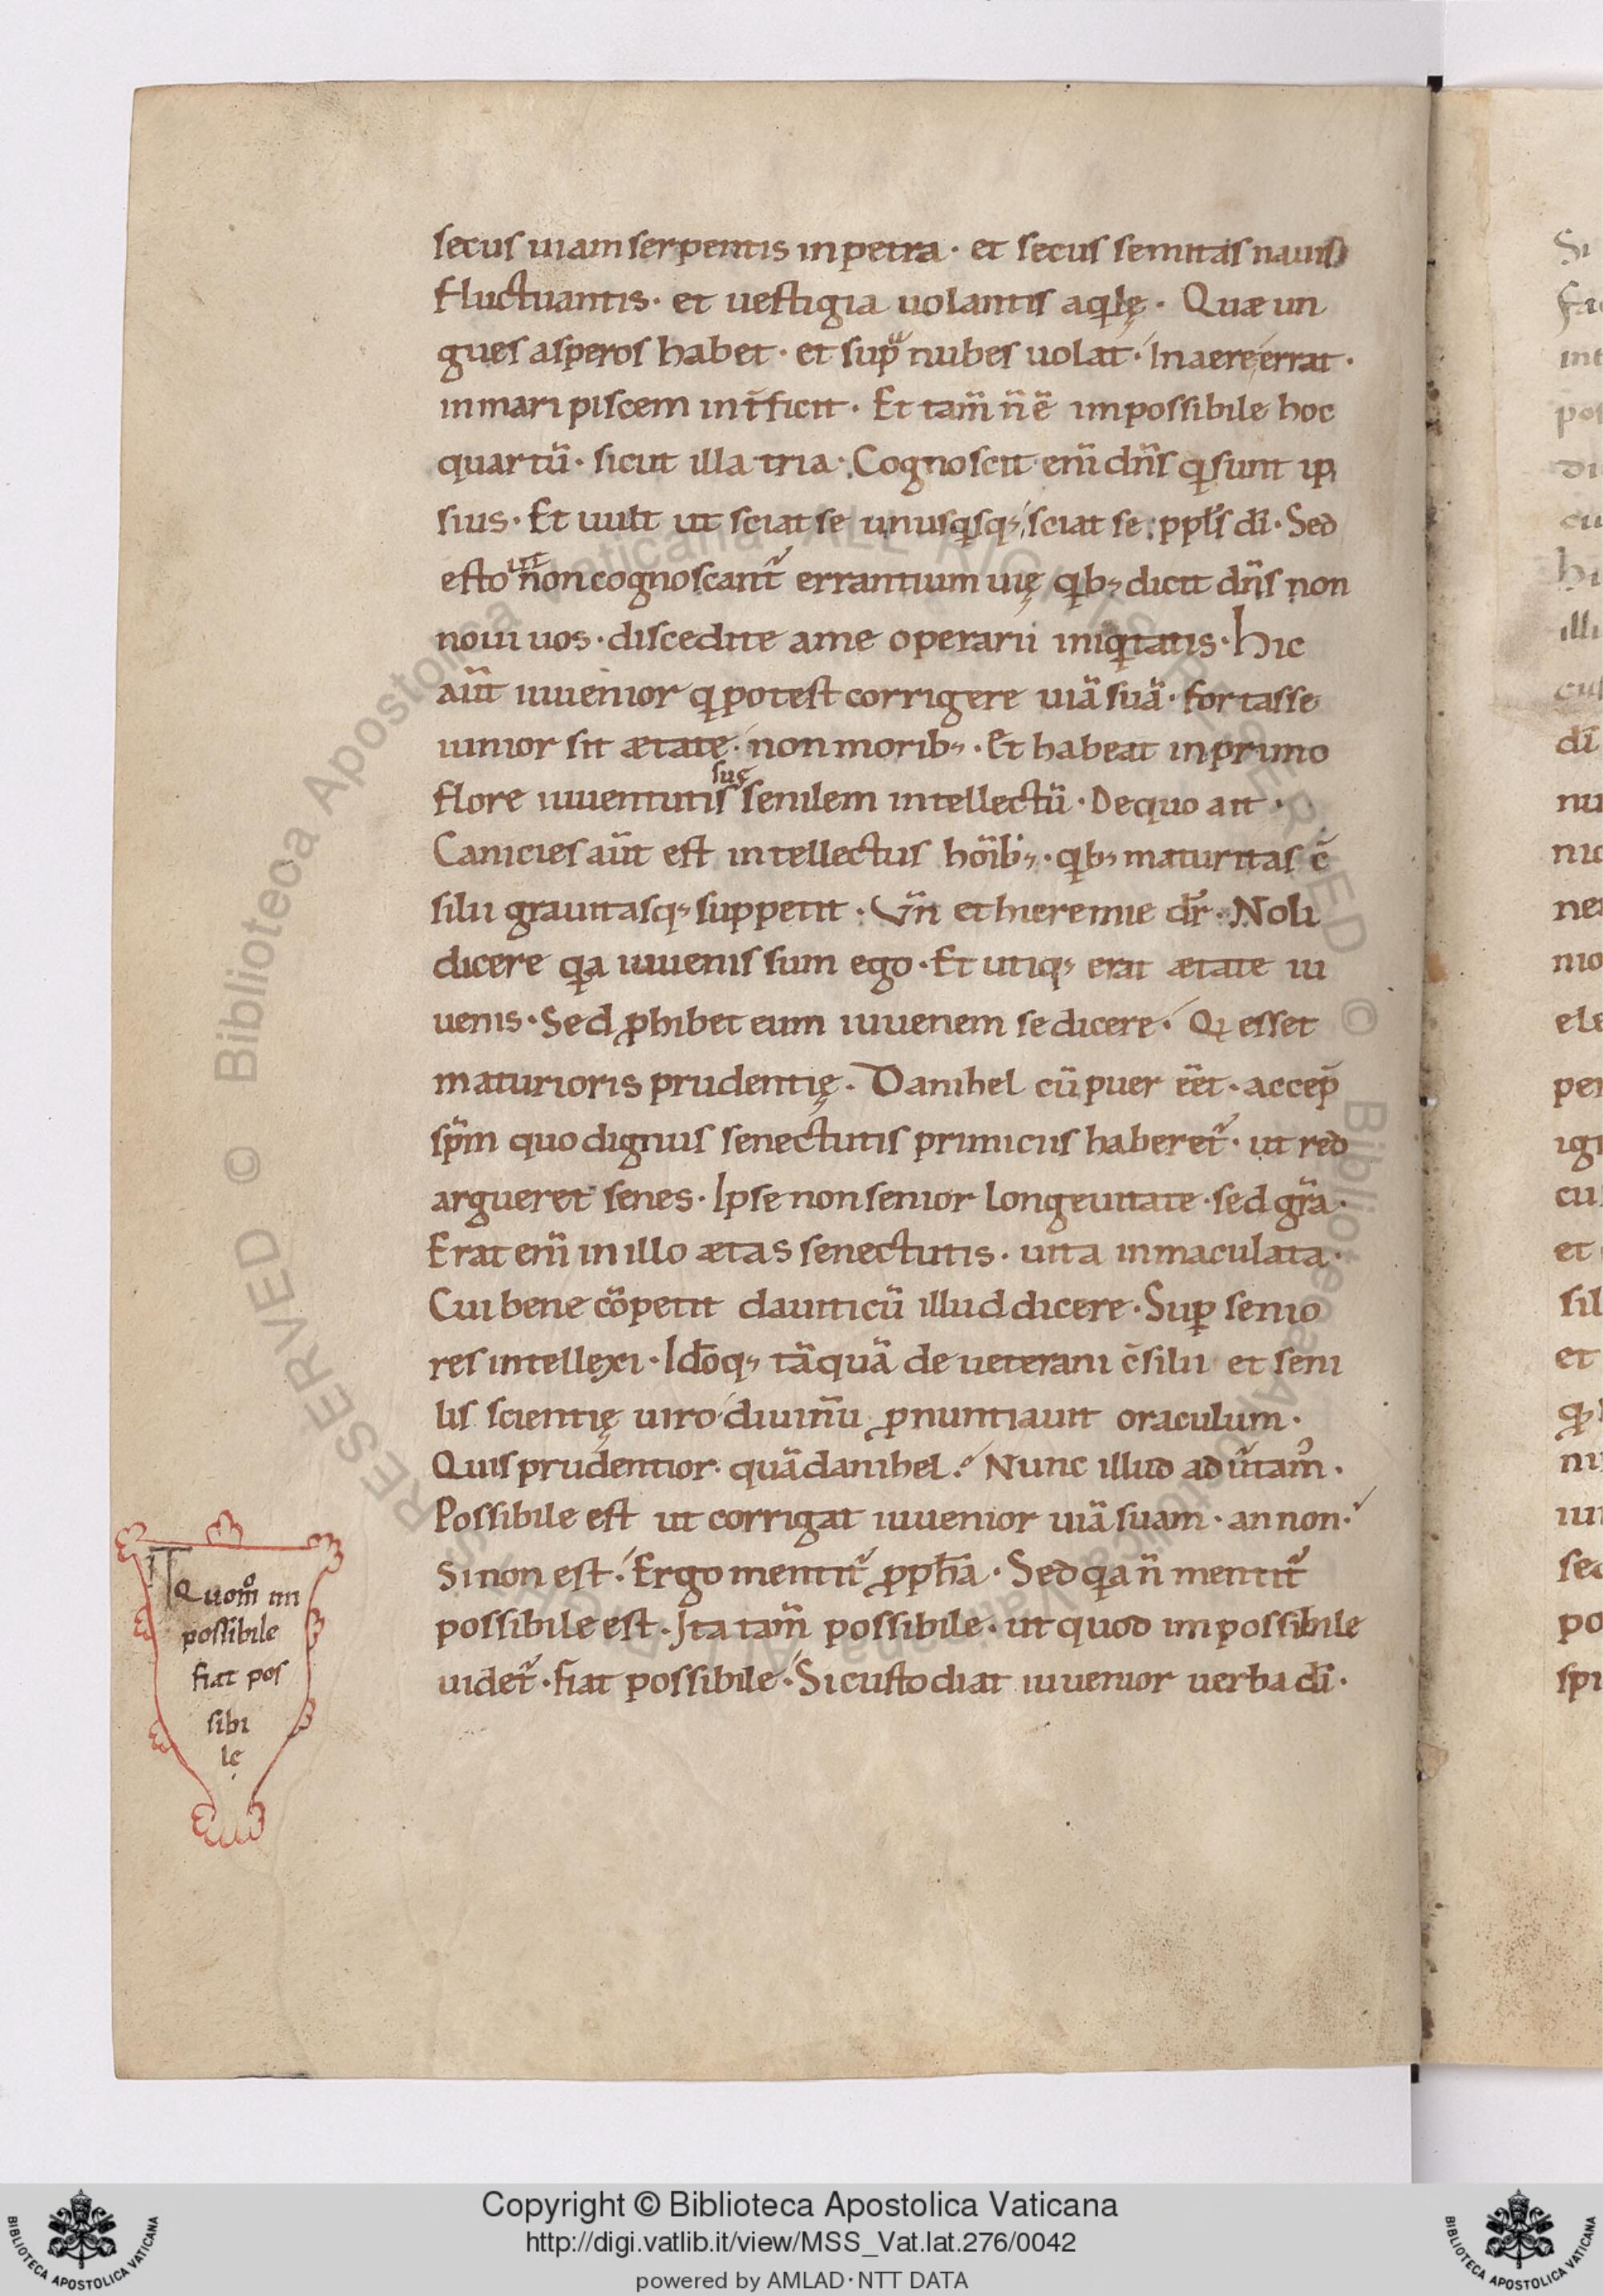 secus uiam serpentis in petra · et secus semitas nauis
fluctuantis · et uestigia uolantis aqͥlę · Quæ un
gues asperos habet · et suꝑ nubes uolat · In aere errat ·
in mari piscem int̄ficit · Et tam̄ n̄ ē impossibile hoc
quartū · sicut illa tria · Cognoscit eni̅ dn̄s qͥ sunt ip
sius · Et uult ut sciat se unusqͥsq; sciat se ppl̄s di̅ · Sed
esto ut non cognoscant̄ errantium uię qͥb; dicit dn̄s non
noui uos · discedite a me operarii iniqͥtatis · Hic
aūt iuuenior qͥ potest corrigere uiā suā · fortasse
iunior sit ætate · non morib; · Et habeat in primo
flore iuuentutis suę senilem intellectū · De quo ait ·
Canicies aūt est intellectus hoīb; · qͥb; maturitas c̄
silii grauitasq; suppetit · Vn̄ et hieremie dr̄ · Noli
dicere qͥa iuuenis sum ego · Et utiq; erat ætate iu
uenis · Sed ꝓhibet eum iuuenem se dicere · Qͥ esset
maturioris prudentię · Danihel cū puer eēt · accep̄
sp̄m quo dignus senectutis primicus haberet̄ · ut red
argueret senes · Ipse non senior longeuitate · sed gr̄a ·
Erat eni̅ in illo ætas senectutis · uita inmaculata ·
Cui bene cōpetit dauiticū illud dicere · Suꝑ senio
res intellexi · Idōq; tāquā de ueterani c̄silii et seni
lis scientię uiro diuin̄u ꝓnuntiauit oraculum ·
Quis prudentior · quā danihel · Nunc illud aduūtam᷒ ·
Possibile est ut corrigat iuuenior uiā suam · an non ·
Si non est · Ergo mentit̄ ꝓph̄a · Sed qͥa n̄ mentit̄
possibile est · Ita tam̄ possibile · ut quod impossibile
uidet̄ · fiat possibile · Si custodiat iuuenior uerba di̅ ·
Quom̊ im
possibile
fiat pos
sibi
le
Copyright © Biblioteca Apostolica Vaticana
http://digi.vatlib.it/view/MSS_Vat.lat.276/0042
powered by AMLAD·NTT DATA
BIBLIOTECA APOSTOLICA VATICANA
BIBLIOTECA APOSTOLICA VATICANA